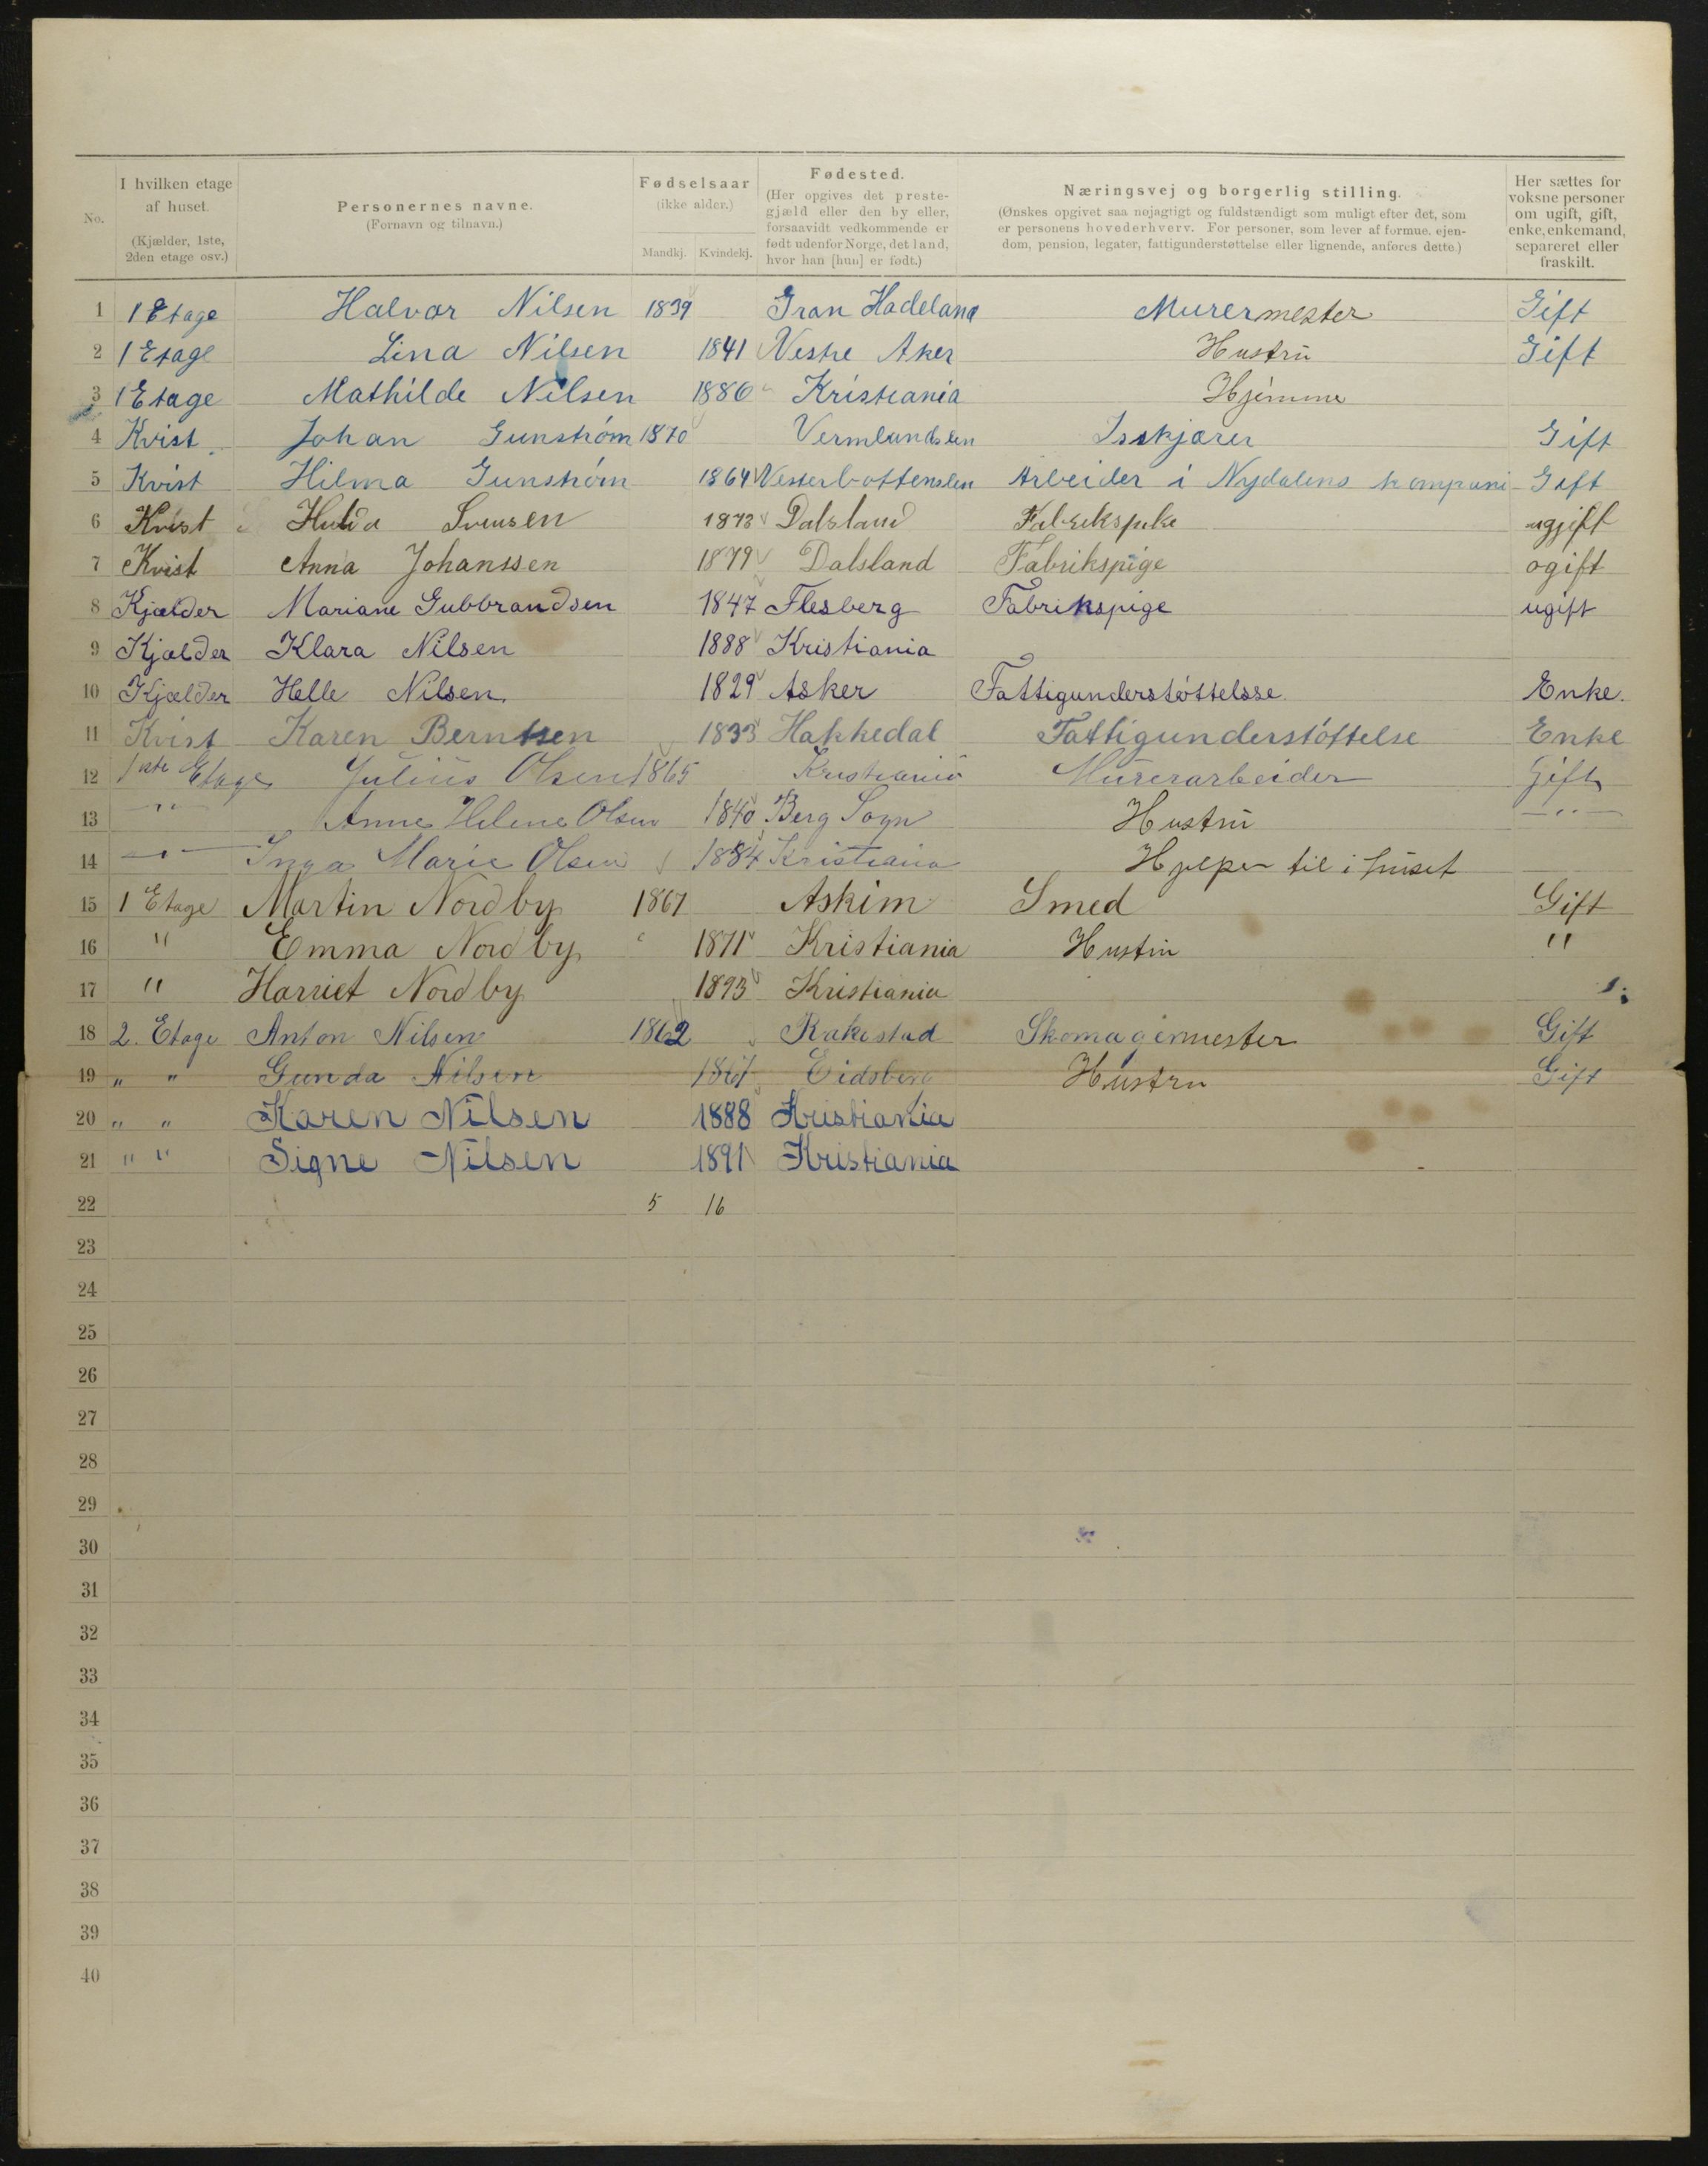 No.
I hvilken etage af huset. (Kjælder, 1ste, 2den etage osv.)
Personernes navne. (Fornavn og tilnavn.)
Fødselsaar (ikke alder.) Mandkj. Kvindekj.
Fødested. (Her opgives det prestegjæld eller den by eller, forsaavidt vedkommende er født udenfor Norge, det land, hvor han [hun] er født.)
Næringsvej og borgerlig stilling. (Ønskes opgivet saa nøjagtigt og fuldstændigt som muligt efter det, som er personens hovederhverv. For personer, som lever af formue, ejendom, pension, legater, fattigunderstøttelse eller lignende, anføres dette.)
Her sættes for voksne personer om ugift, gift, enke, enkemand, separeret eller fraskilt.
1 1 Etage Halvor Nilsen 1839 Gran Hadeland Murermester Gift
2 1 Etage Lina Nilsen 1841 Vestre Aker Hustru Gift
3 1 Etage Mathilde Nilsen 1886 Kristiania Hjemme
4 Kvist Johan Gunstrøm 1870 Isskjærer Gift
5 Kvist Hilma Gunstrøm 1864 Vesterbottenslen Arbeider i Nydalens kompani Gift
6 Kvist Hulda Svensen 1873 Dalsland ugjift
7 Kvist Anna Johanssen 1879 Dalsland Fabrikspige ogift
8 Kjælder Mariane Gubbrandsen 1847 Flesberg Fabrikspige ugift
9 Kjælder Klara Nilsen 1888 Kristiania
10 Kjælder Helle Nilsen. 1829 Asker Fattigunderstøttelsse Enke.
11 Kvist Karen Berntsen 1833 Hakkedal Fattigunderstøttelse Enke
12 1ste Etage Julius Olsen 1865 Kristiania Murerarbeider Gift
13 " Anne Helene Olsen 1840 Berg Sogn Hustru "
14 " Inga Marie Olsen 1884 Kristiania Hjelper til i huset
15 1 Etage Martin Nordby 1867 Askim Smed Gift
16 " Emma Nordby 1871 Kristiania Hustru "
17 " Harriet Nordby 1893 Kristiania
18 2. Etage Anton Nilsen 1862 Rakestad Skomagermester Gift
19 " " Gunda Nilsen 1867 Eidsberg Hustru Gift
20 " " Karen Nilsen 1888 Kristiania
21 " " Signe Nilsen 1891 Kristiania
22 5 16
23
24
25
26
27
28
29
30
31
32
33
34
35
36
37
38
39
40